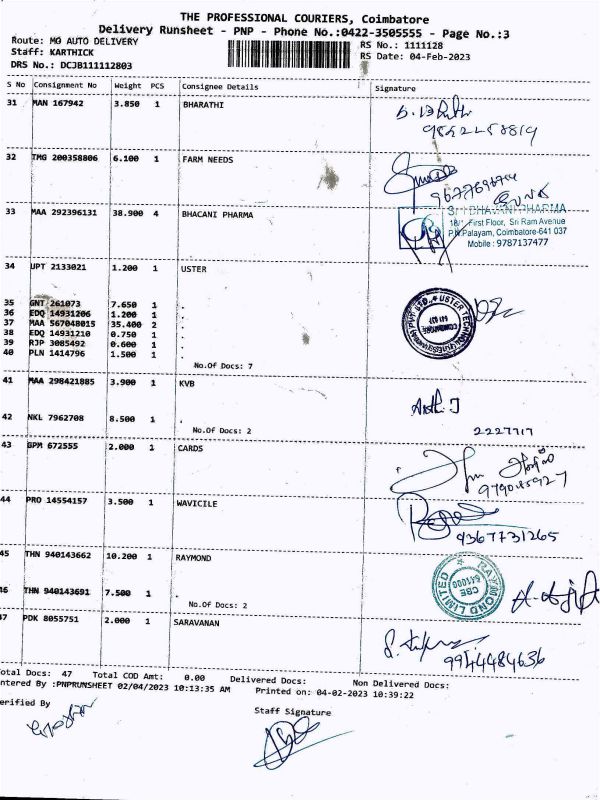 THE PROFESSIONAL COURIERS, Coimbatore
Delivery Runsheet - PNP - Phone No.:0422-3505555 - Page No.:3
Route: MG AUTO DELIVERY
Staff: KARTHICK
DRS No.: DCJB111112803
RS No.: 1111128
RS Date: 04-Feb-2023
S No Consignment No Weight PCS Consignee Details Signature
31 MAN 167942 3.850 1 BHARATHI
9842658819
32 TMG 200358806 6.100 1 FARM NEEDS
33 MAA 292396131 38.900 4 BHACANI PHARMA
SRI BHAVANI PHARMA
18/1 First Floor, Sri Ram Avenue
P.N.Palayam, Coimbatore-641 037
Mobile : 9787137477
34 UPT 2133021 1.200 1 USTER
35 GNT 261073 7.650 1 .
36 EDQ 14931206 1.200 1 .
37 MAA 567048015 35.400 2 .
38 EDQ 14931210 0.750 1 .
39 RJP 3085492 0.600 1 .
40 PLN 1414796 1.500 1 .
No.Of Docs: 7
41 MAA 298421885 3.900 1 KVB
42 NKL 7962708 8.500 1 .
No.Of Docs: 2
2227717
43 GPM 672555 2.000 1 CARDS
44 PRO 14554157 3.500 1 WAVICILE
9367731265
45 THN 940143662 10.200 1 RAYMOND
RAYMOND LIMITED
CBE
641000
46 THN 940143691 7.500 1 .
No.Of Docs: 2
47 PDK 8055751 2.000 1 SARAVANAN
9944484636
Total Docs: 47 Total COD Amt: 0.00 Delivered Docs: Non Delivered Docs:
ntered By :PNPRUNSHEET 02/04/2023 10:13:35 AM Printed on: 04-02-2023 10:39:22
erified By
Staff Signature